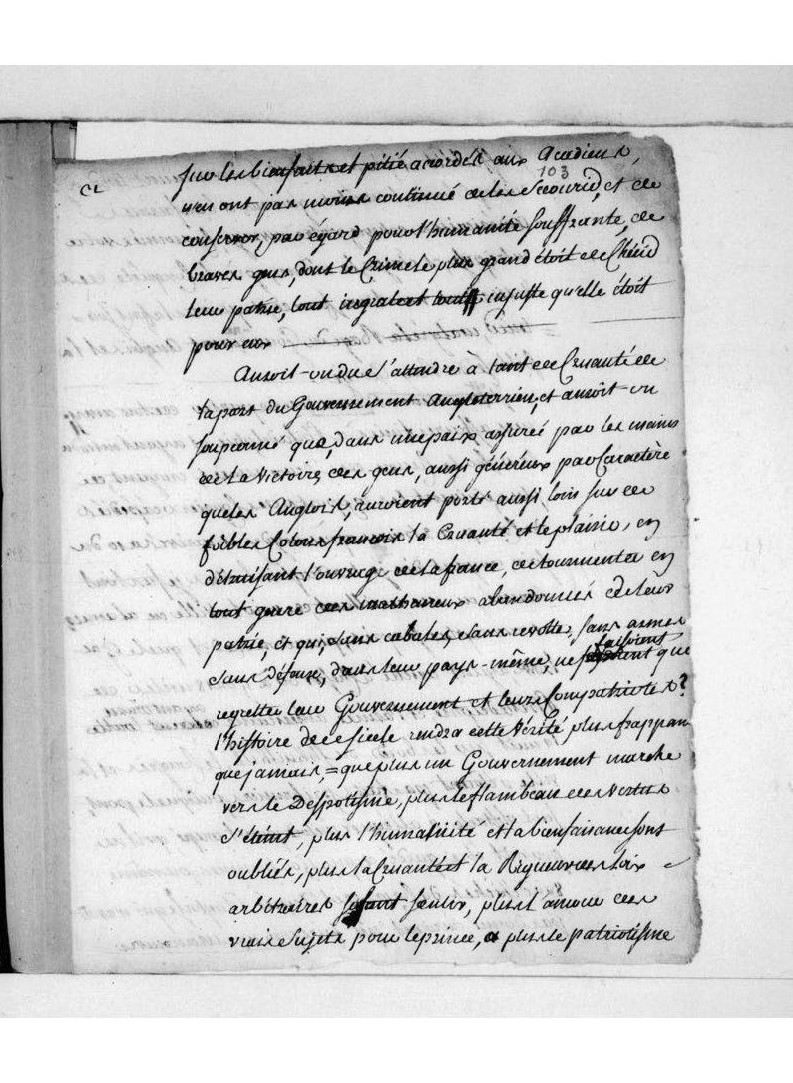 sur les bienfaits et pitié accordés aux Acadiens,
103
n'en ont pas moins continué de les secourir, et de
conserver, par égard pour l'humanité souffrante, de
braves gens, dont le Crime le plus grand étoit de Chérir
leur patrie, tout ingrate et toute injuste qu'elle étoit
pour eux
Auroit-on du s'attendre à tant de Cruauté de
la part du Gouvernement Angloterrien, et auroit on
soupçonné que, dans une paix assurée par les mains
de la Victoire, des gens, aussi généreux par Caractère
que les Anglois, auroient porté aussi loin sur de
foibles Colons françois la Cruauté et le plaisir, en
détruisant l'ouvrage de la france, de tourmenter en
tout genre des malheureux abandonnés de leur
patrie, et qui, sans cabales, sans revolte, sans armes
faisoient
sans défense, dans leur pays-même, ne que
regretter leur Gouvernement et leurs Compatriotes?
l'histoire de ce siecle rendra cette Vérité plus frappan
que jamais, = que plus un Gouvernement marche
vers le Despotisme, plus le flambeau des vertus
s'éteint, plus l'humanité et la bienfaisance sont
oubliés, plus la Cruauté et la Rigueur des loix
arbitraires se font sentir, plus l'amour des
vrais Sujets pour le prince, et plus le patriotisme